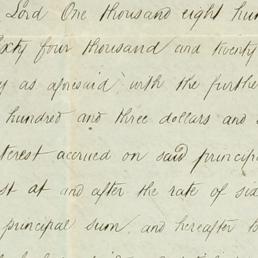 Lord One thousand eight hun
Sixty four thousand and twenty
y as aforesaid; with the further
hundred and three dollars and
terest accrued on said princip
st at and after the rate of six
principal sum, and hereafter to